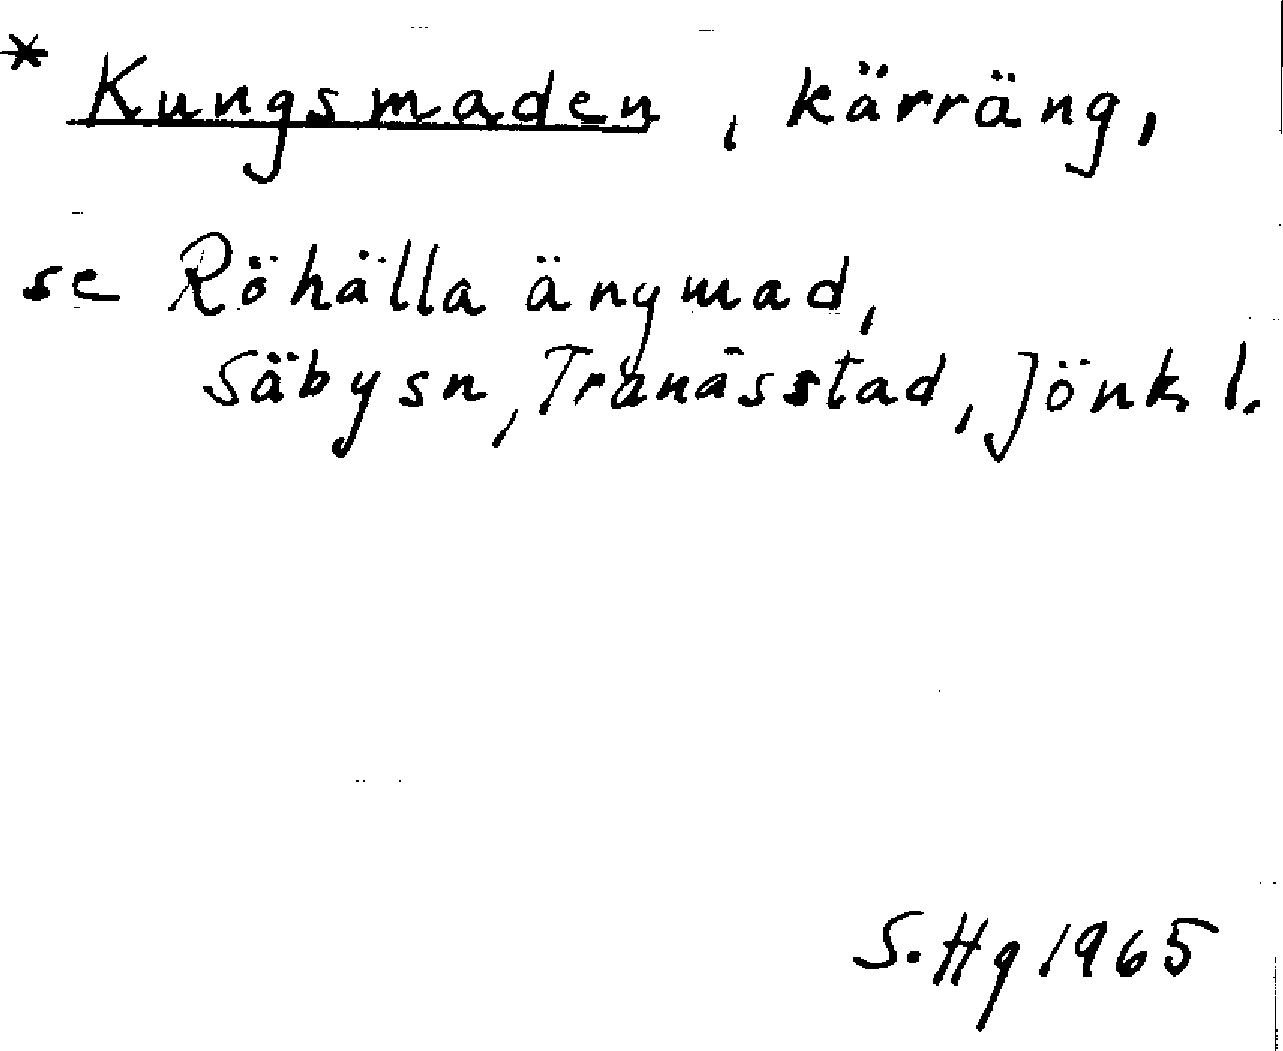 * Kungsmaden, kärräng,
se Röhälla ängmad,
Säbysn, Tranås stad, Jönk. l.
S. Hg 1965